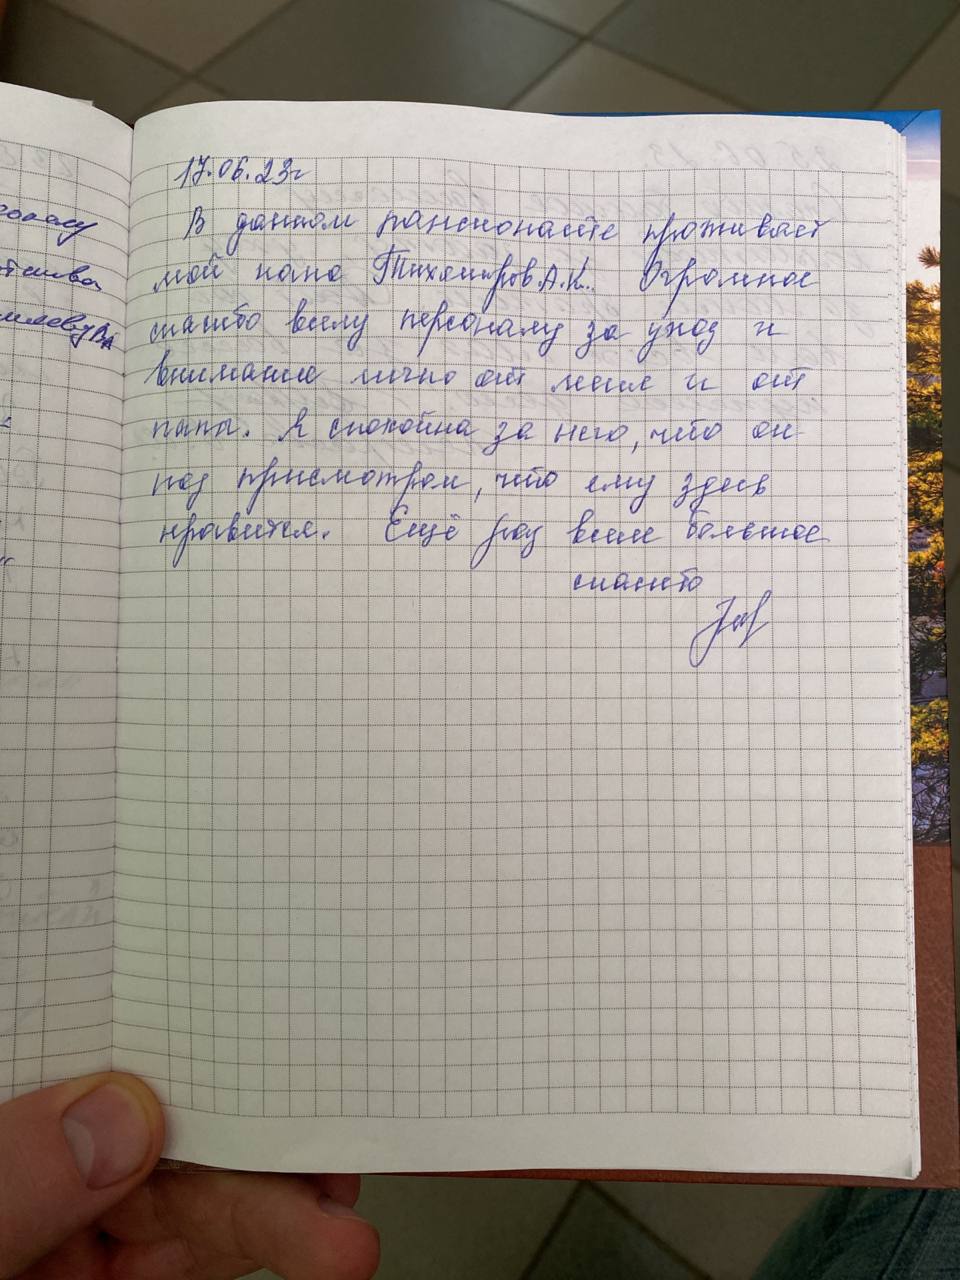 17.06.23г
В данном пансионате проживает
мой папа Тихомиров А.К.. Огромное
спасибо всему персоналу за уход и
внимание лично от меня и от
папы. Я спокойна за него, что он
под присмотром, что ему здесь
нравится. Ещё раз всем большое
спасибо